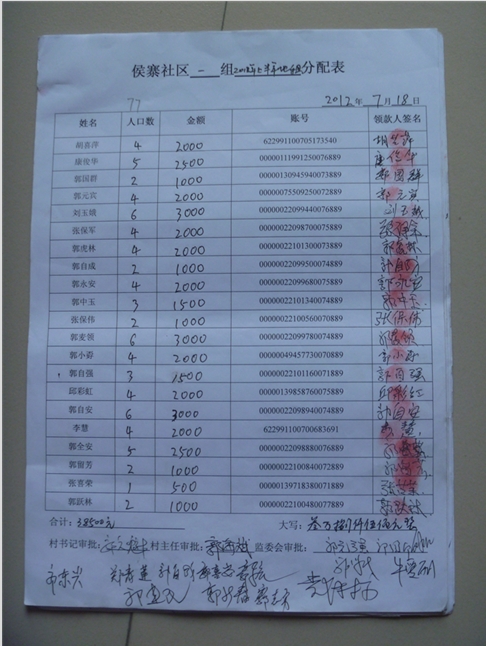 侯寨社区 一 组2012年上半年地租分配表
77 2012年 7月18日
姓名 人口数 金额 账号 领款人签名
胡喜萍 4 2000 622991100705173540 胡喜萍
康俊华 5 2500 00000111991250076889 康俊华
郭国群 2 1000 00000130945940073889 郭国群
郭元宾 4 2000 00000075509250072889 郭元宾
刘玉娥 6 3000 00000022099440076889 刘玉娥
张保军 4 2000 00000022098700075889 张保军
郭虎林 4 2000 00000022101300073889 郭虎林
郭自成 2 1000 00000022099500074889 郭自成
郭永安 4 2000 00000022099680075889 郭永安
郭中玉 3 1500 00000022101340074889 郭中玉
张保伟 2 1000 00000022100560070889 张保伟
郭麦领 6 3000 00000022099780074889 郭麦领
郭小孬 4 2000 00000049457730070889 郭小孬
郭自强 3 1500 00000022101160071889 郭自强
邱彩虹 4 2000 00000139858760075889 邱彩虹
郭自安 6 3000 00000022098940074889 郭自安
李慧 4 2000 622991100700683691 李慧
郭全安 5 2500 00000022098880076889
郭留芳 2 1000 00000022100840072889
张喜荣 1 500 00000139718380071889 张喜荣
郭跃林 2 1000 00000022100480077889 郭跃林
合计：38500元 大写：叁万捌仟伍佰元整
村书记审批： 村主任审批： 监委会审批：